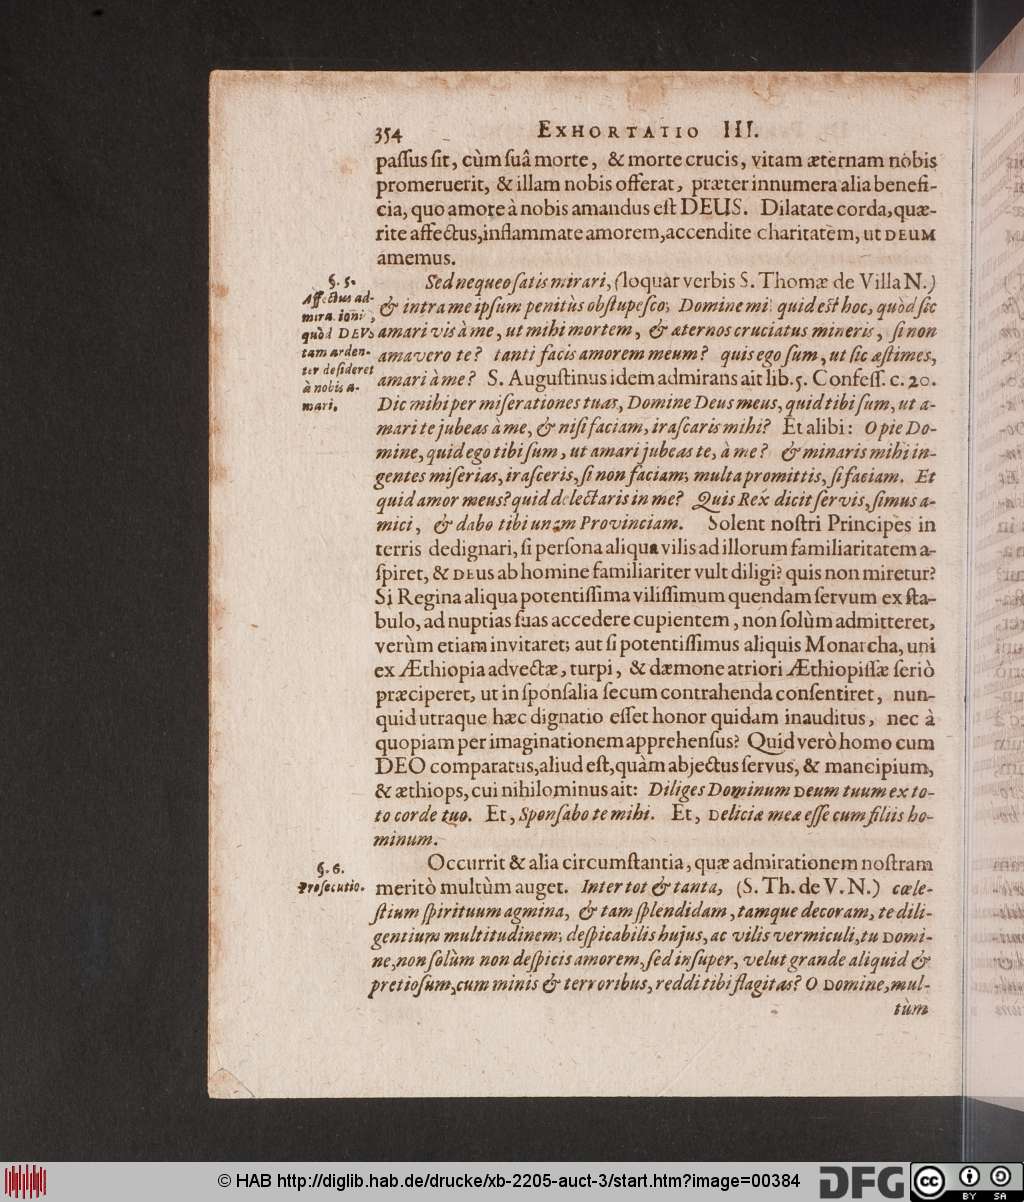 354 EXHORTATIO III.
passus sit, cùm suâ morte, & morte crucis, vitam æternam nobis
promeruerit, & illam nobis offerat, præter innumera alia benefi-
cia, quo amore à nobis amandus est DEUS. Dilatate corda, quæ-
rite affectus, inflammate amorem, accendite charitatem, ut DEUM
amemus.
§. 5.
Affectus ad-
mirationi,
quòd DEVs
tam arden-
ter desideret
à nobis a-
mari.
Sed nequeo satis mirari, (loquar verbis S. Thomæ de Villa N.)
& intra me ipsum penitùs obstupesco; Domine mi! quid est hoc, quòd sic
amari vis à me, ut mihi mortem, & æternos cruciatus mineris, si non
amavero te? tanti facis amorem meum? quis ego sum, ut sic æstimes,
amari à me? S. Augustinus idem admirans ait lib. 5. Confess. c. 20.
Dic mihi per miserationes tuas, Domine Deus meus, quid tibi sum, ut a-
mari te jubeas à me, & nisi faciam, irascaris mihi? Et alibi: O pie Do-
mine, quid ego tibi sum, ut amari jubeas te, à me? & minaris mihi in-
gentes miserias, irasceris, si non faciam; multa promittis, si faciam. Et
quid amor meus? quid delectaris in me? Quis Rex dicit servis, simus a-
mici, & dabo tibi unam Provinciam. Solent nostri Principes in
terris dedignari, si persona aliqua vilis ad illorum familiaritatem a-
spiret, & DEus ab homine familiariter vult diligi? quis non miretur?
Si Regina aliqua potentissima vilissimum quendam servum ex sta-
bulo, ad nuptias suas accedere cupientem, non solùm admitteret,
verùm etiam invitaret; aut si potentissimus aliquis Monarcha, uni
ex Æthiopia advectæ, turpi, & dæmone atriori Æthiopissæ seriò
præciperet, ut in sponsalia secum contrahenda consentiret, nun-
quid utraque hæc dignatio esset honor quidam inauditus, nec à
quopiam per imaginationem apprehensus? Quid verò homo cum
DEO comparatus, aliud est, quàm abjectus servus, & mancipium,
& æthiops, cui nihilominus ait: Diliges Dominum Deum tuum ex to-
to corde tuo. Et, Sponsabo te mihi. Et, Deliciæ meæ esse cum filiis ho-
minum.
§. 6.
Prosecutio.
Occurrit & alia circumstantia, quæ admirationem nostram
meritò multùm auget. Inter tot & tanta, (S. Th. de V. N.) cœle-
stium spirituum agmina, & tam splendidam, tamque decoram, te dili-
gentium multitudinem; despicabilis hujus, ac vilis vermiculi, tu Domi-
ne, non solùm non despicis amorem, sed insuper, velut grande aliquid &
pretiosum, cum minis & terroribus, reddi tibi flagitas? O Domine, mul-
tùm
© HAB http://diglib.hab.de/drucke/xb-2205-auct-3/start.htm?image=00384
DFG
cc
BY SA